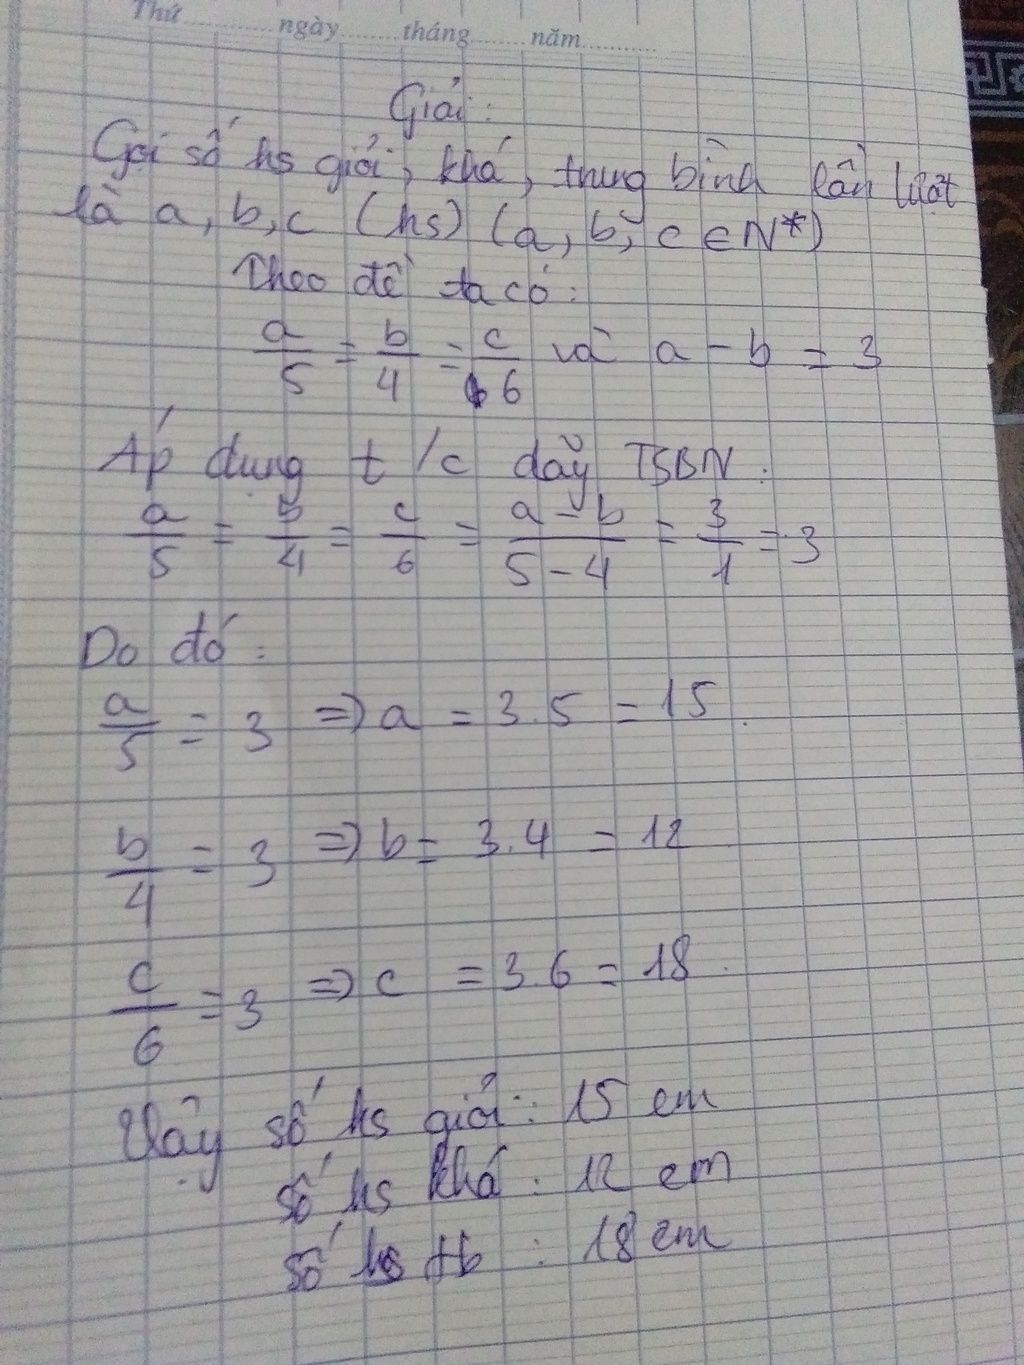 Thứ ngày tháng năm
Giải:
Gọi số hs giỏi, khá, trung bình lần lượt
là a, b, c (hs) (a, b, c ∈ N*)
Theo đề ta có:
a/5 = b/4 = c/6 và a - b = 3
Áp dụng t/c dãy TSBN:
a/5 = b/4 = c/6 = a-b/5-4 = 3/1 = 3
Do đó:
a/5 = 3 => a = 3.5 = 15.
b/4 = 3 => b = 3.4 = 12
c/6 = 3 => c = 3.6 = 18.
Vậy số hs giỏi: 15 em
số hs khá: 12 em
số hs tb: 18 em